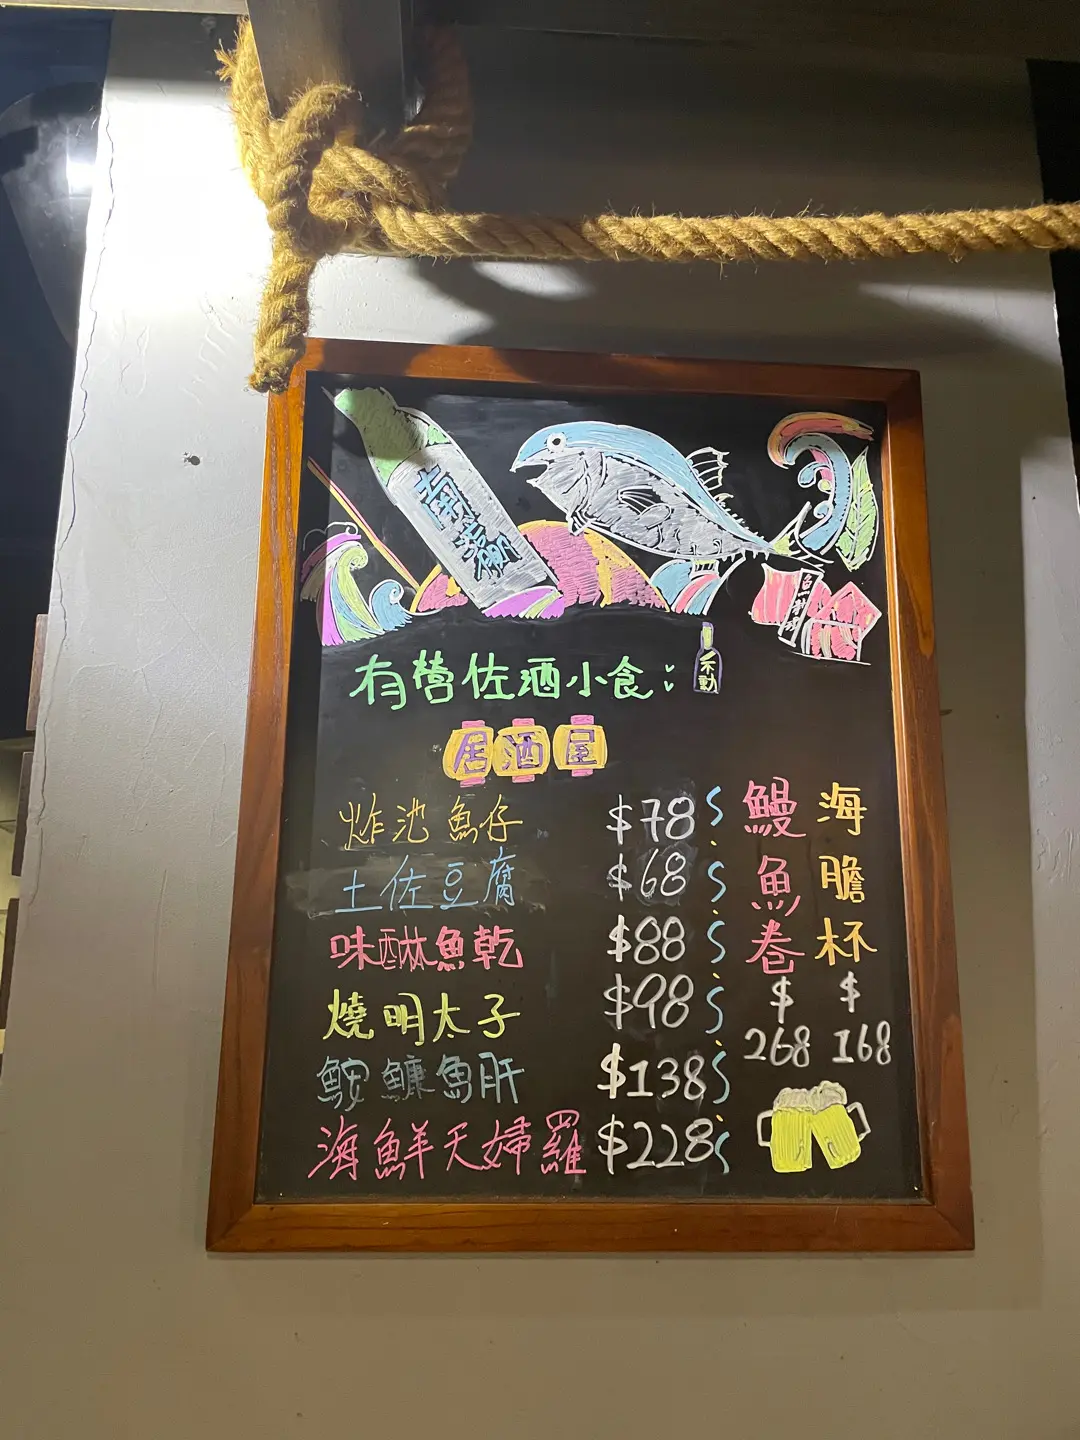 有營佐酒小食：
不動
居酒屋
炸池魚仔 $78
土佐豆腐 $68
味醂魚乾 $88
燒明太子 $98
鮟鱇魚肝 $138
海鮮天婦羅 $228
海膽杯 $168
鰻魚卷 $268